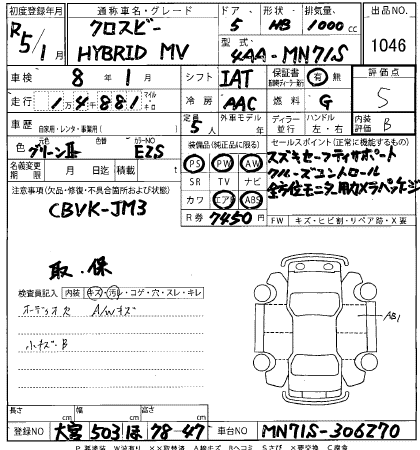 初度登録年月 通称車名・グレード ドア 形状 排気量 出品No.
R5/1月 クロスビー HYBRID MV 5 HB 1000cc 1046
型式 4AA-MN71S
車検 8年1月 シフト IAT 保証書 有 無 評価点 5
走行 1万4881 マイル キロ 冷房 AAC 燃料 G 内装評価 B
車歴 自家用・レンタ・事業用( ) 定員 5人 外車モデル 年 ディーラー 並行 ハンドル 左・右
色 グリーンⅡ 色替 カラーNo. EZS 装備品(純正品に限る) セールスポイント(正常に機能するもの)
名義変更期限 月 日迄 積載 t PS PW AW スズキセーフティサポート
注意事項(欠品・修復・不具合箇所および状態) SR TV ナビ クルーズコントロール
CBVK-JM3 カワ エアB ABS 全方位モニター用カメラパッケージ
R券 7450円 FW キズ・ヒビ割・リペア跡・X要
取.保
検査員記入 内装 キズ・汚れ・コゲ・穴・スレ・キレ
オーディオ欠 A/Wキズ
小キズ・B
長さ cm 幅 cm 高さ cm
登録No 大宮 503 ほ 78-47 車台No MN71S-306270